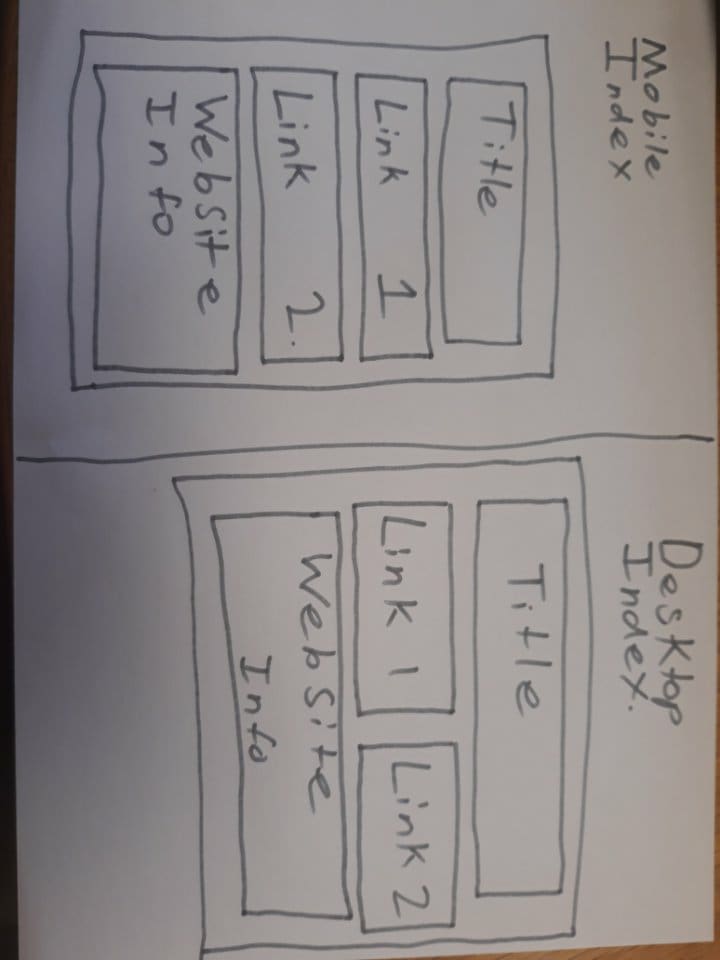 Mobile
Index
Title
Link 1
Link 2.
Website
Info
Desktop
Index.
Title
Link 1
Link 2
Website
Info